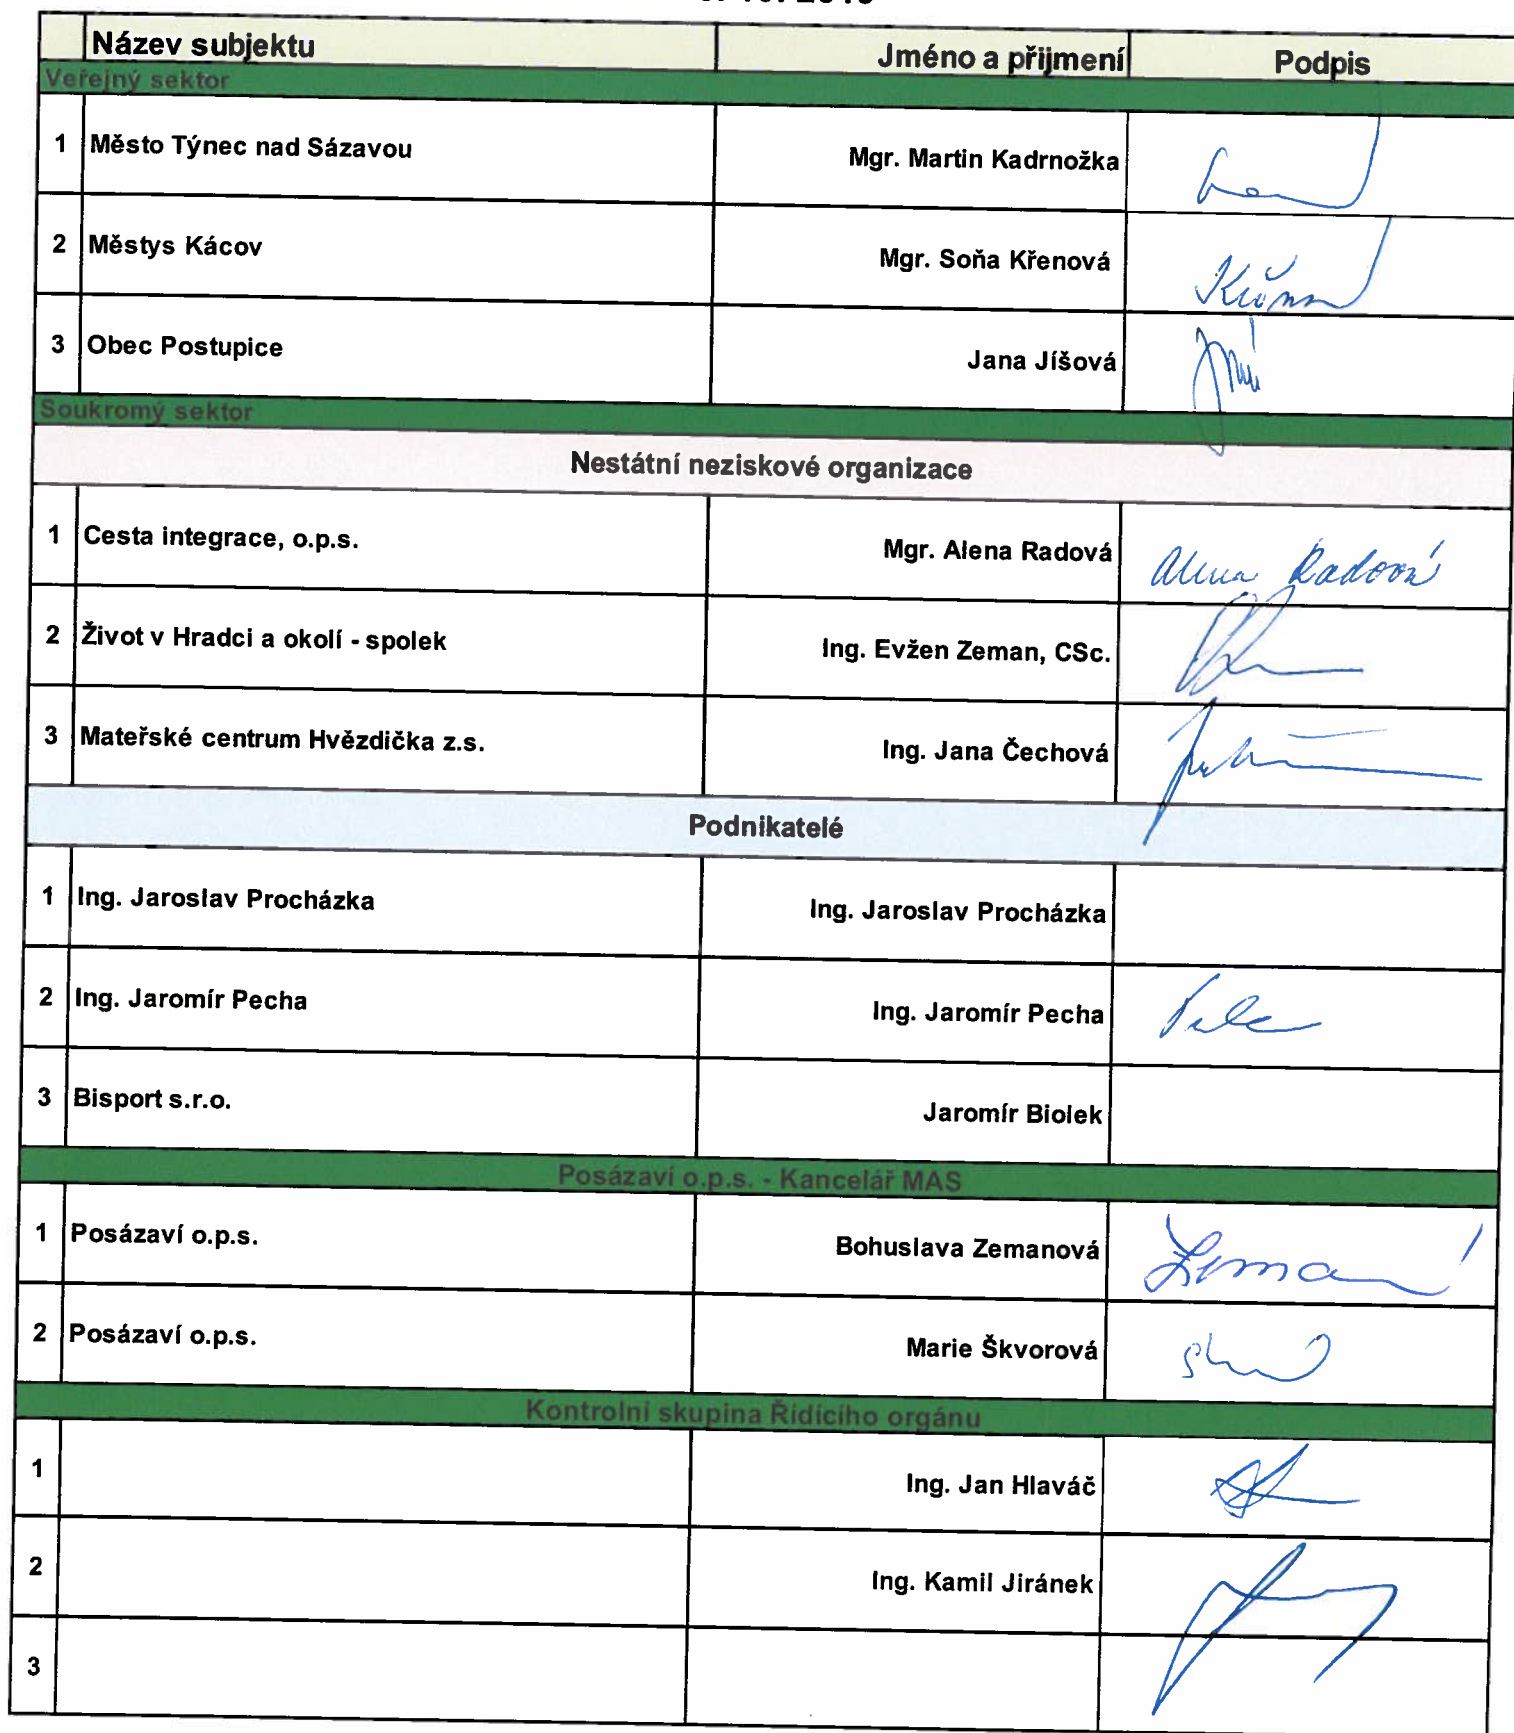 Název subjektu Jméno a přijmení Podpis
Veřejný sektor
1 Město Týnec nad Sázavou Mgr. Martin Kadrnožka
2 Městys Kácov Mgr. Soňa Křenová
3 Obec Postupice Jana Jíšová
Soukromý sektor
Nestátní neziskové organizace
1 Cesta integrace, o.p.s. Mgr. Alena Radová Alena Radová
2 Život v Hradci a okolí - spolek Ing. Evžen Zeman, CSc.
3 Mateřské centrum Hvězdička z.s. Ing. Jana Čechová
Podnikatelé
1 Ing. Jaroslav Procházka Ing. Jaroslav Procházka
2 Ing. Jaromír Pecha Ing. Jaromír Pecha
3 Bisport s.r.o. Jaromír Biolek
Posázaví o.p.s. - Kancelář MAS
1 Posázaví o.p.s. Bohuslava Zemanová
2 Posázaví o.p.s. Marie Škvorová
Kontrolní skupina Řídícího orgánu
1 Ing. Jan Hlaváč
2 Ing. Kamil Jiránek
3